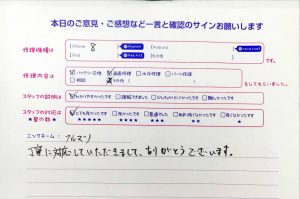 本日のご意見・ご感想など一言と確認のサインお願いします
修理機種は
iPhone 8
Android
iPad
その他
修理内容は
バッテリー交換 画面修理 水没修理 パーツ修理
その他
をしてもらいました。
スタッフの説明は
わかりやすかったです 理解できました 少しわかりにくかったです 難しかったです
スタッフの対応は
とても良かったです 良かったです 普通でした
★星の数★
★★★★★ ★★★★ ★★★ ★★ ★
ニックネーム：クルマン
丁寧に対応していただきまして、ありがとうございます。